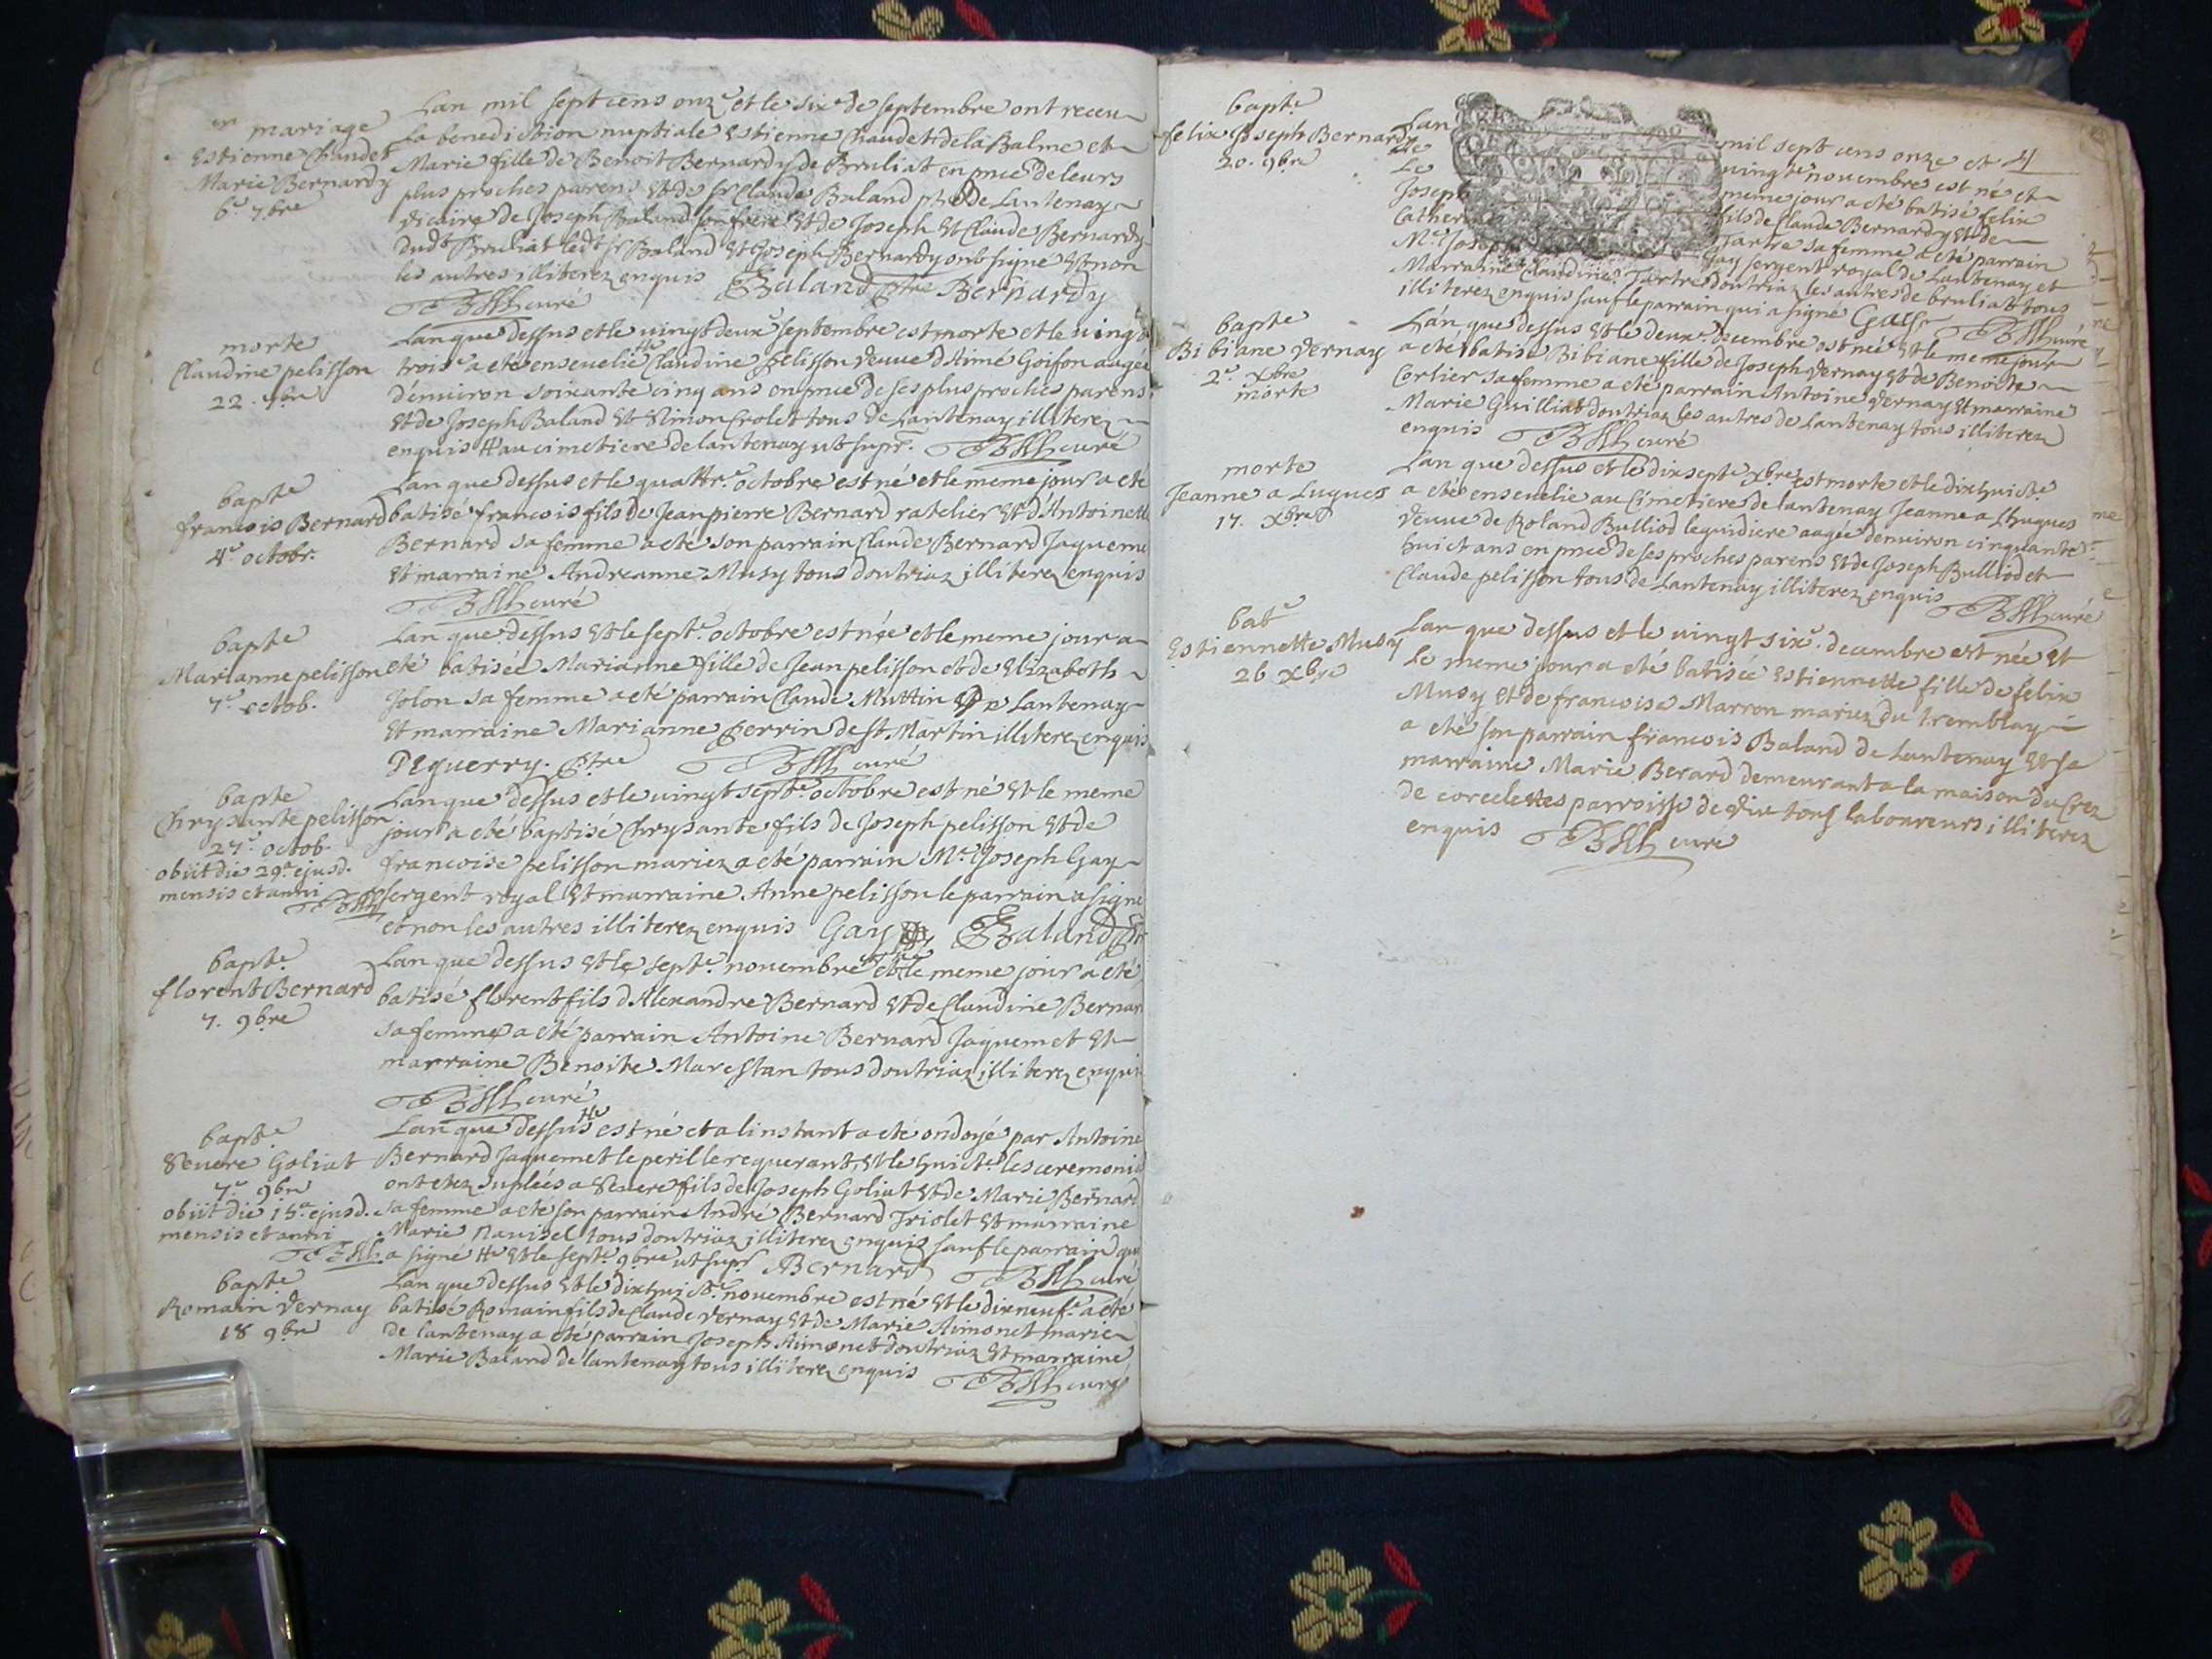 mariage
Estienne Chaudet
Marie Bernardy
6e 7bre
Lan mil sept cens onze et le sixe de septembre ont receu
la benediction nuptiale Estienne Chaudet de la Balme et
Marie fille de Benoit Bernardy de Bruliat en pnce de leurs
plus proches parens et de sr Claude Baland ptre de Lantenay
vicaire de Joseph Baland son frere et de Joseph et Claude Bernardy
dudt Bruliat ledt sr Baland et Joseph Bernardy ont signe et non
les autres illiterez enquis Baland ptre Bernardy
curé
morte
Claudine pelisson
22. 7bre
Lan que dessus et le vingt deuxe septembre est morte et le vingt
troise a eté ensevelie Claudine pelisson veuve d'Aimé Goifon aagée
d'environ soixante cinq ans en pnce de ses plus proches parens
et de Joseph Baland et Simon Crolet tous de Lantenay illiterez
enquis au cimetiere de lantenay ut supr. curé
bapte
francois Bernard
4e octobr.
Lan que dessus et le quattre octobre est né et le meme jour a eté
batisé francois fils de Jean pierre Bernard ratelier et d'Antoinette
Bernard sa femme a eté son parrain Claude Bernard Jaqueme
et marraine Andreanne Musy tous doutriaz illiterez enquis
curé
bapte
Marianne pelisson
7e octob.
Lan que dessus et le septe octobre est née et le meme jour a
eté batisée Marianne fille de Jean pelisson et de Elizabeth
Jolon sa femme a eté parrain Claude Muttin de Lantenay
et marraine Marianne perrin de st Martin illiterez enquis
Deguerry. ptre curé
bapte
Chrysante pelisson
27e octob.
obiit die 29a ejusd.
mensis et anni
Lan que dessus et le vingt septe octobre est né et le meme
jour a eté baptisé Chrysante fils de Joseph pelisson et de
francoise pelisson mariez a eté parrain Me Joseph Gay
sergent royal et marraine Anne pelisson le parrain a signé
et non les autres illiterez enquis Gay Baland ptre
bapte
florent Bernard
7. 9bre
Lan que dessus et le septe novembre et le meme jour a eté
batisé florent fils d'Alexandre Bernard et de Claudine Bernar
sa femme a eté parrain Antoine Bernard Jaquemet et
marraine Benoite Marestan tous doutriaz illiterez enqui
curé
bapte
Severe Goliat
7e 9bre
obiit die 15a ejusd.
mensis et anni
Lan que dessus est né et a linstant a eté ondoyé par Antoine
Bernard Jaquemet le peril le requerant, et le huicte les ceremonie
ont eté suplées a Severe fils de Joseph Goliat et de Marie Bernard
sa femme a eté son parrain André Bernard Triolet et marraine
Marie Navisel tous doutriaz illiterez enquis sauf le parrain qui
a signé et le septe 9bre ut supr ABernard curé
bapte
Romain Vernay
18 9bre
Lan que dessus et le dixhuicte novembre est né et le dixneufe a eté
batisé Romain fils de Claude Vernay et de Marie Aimonet marie
de lantenay a eté parrain Joseph Aimonet doutriaz et marraine
Marie Baland de lantenay tous illiterez enquis curé
bapte
felix Joseph Bernardy
20. 9bre
Lan mil sept cens onze et
le vingte novembre est né et
le meme jour a eté batisé felix
Joseph fils de Claude Bernardy et de
Catheri Tartre sa femme a eté parrain
Me Joseph Gay sergent royal de Lantenay et
Marraine Claudine Tartre doutriaz les autres de bruliat tous
illiterez enquis sauf le parrain qui a signé Gay curé
bapte
Bibiane Vernay
2e Xbre
morte
Lan que dessus et le deuxe decembre est née et le meme jour
a eté batisé Bibiane fille de Joseph Vernay et de Benoite
Cortier sa femme a eté parrain Antoine Vernay et marraine
Marie Guilliat doutriaz les autres de Lantenay tous illiterez
enquis curé
morte
Jeanne a Lugues
17. Xbre
Lan que dessus et le dixsepte xbre est morte et le dixhuicte
a eté ensevelie au cimetiere de lantenay Jeanne a Lhugues
veuve de Roland Bulliod leguidiere aagée denviron cinquante
huict ans en pnce de ses proches parens et de Joseph Bulliod et
Claude pelisson tous de Lantenay illiterez enquis curé
bate
Estiennette Musy
26 xbre
Lan que dessus et le vingt sixe. decembre est née et
le meme jour a eté batisée Estiennette fille de felix
Musy et de francoise Marron mariez du tremblay
a eté son parrain francois Baland de Lantenay et sa
marraine Marie Berard demeurant a la maison du Crez
de corcelettes parroisse de Vieu tous laboureurs illiterez
enquis curé